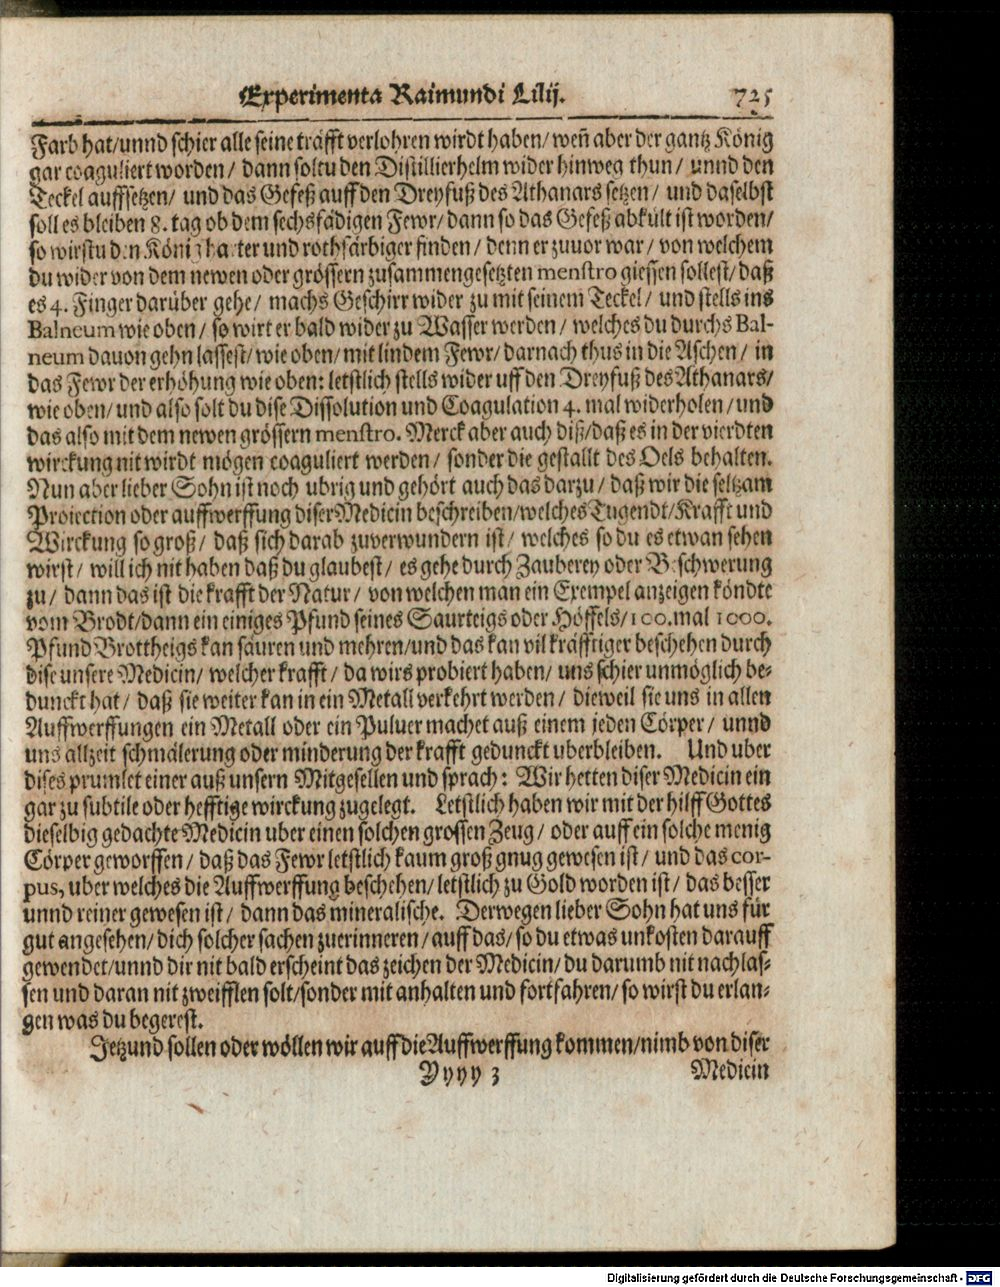 Experimenta Raimundi Lilij. 725
Farb hat/unnd schier alle seine träfft verlohren wirdt haben/ weñ aber der gantz König
gar coaguliert worden/ dann soltu den Distillierhelm wider hinweg thun/ unnd den
Teckel auffsetzen/ und das Gefeß auff den Dreyfuß des Athanars setzen/ und daselbst
soll es bleiben 8. tag ob dem sechsfädigen Fewr/ dann so das Gefeß abkült ist worden/
so wirstu den König harter und rothfärbiger finden/ denn er zuuor war/ von welchem
du wider von dem newen oder grössern zusammengesetzten menstro giessen sollest/ daß
es 4. Finger darüber gehe/ machs Geschirr wider zu mit seinem Teckel/ und stells ins
Balneum wie oben/ so wirt er bald wider zu Wasser werden/ welches du durchs Bal-
neum dauon gehn lassest/ wie oben/ mit lindem Fewr/ darnach thus in die Aschen/ in
das Fewr der erhöhung wie oben: letstlich stells wider uff den Dreyfuß des Athanars/
wie oben/ und also solt du dise Dissolution und Coagulation 4. mal widerholen/ und
das also mit dem newen grössern menstro. Merck aber auch diß/ daß es in der vierdten
wirckung nit wirdt mögen coaguliert werden/ sonder die gestallt des Oels behalten.
Nun aber lieber Sohn ist noch ubrig und gehört auch das darzu/ daß wir die seltzam
Proiection oder auffwerffung diser Medicin beschreiben/welches Tugendt/Krafft und
Wirckung so groß/ daß sich darab zuverwundern ist/ welches so du es etwan sehen
wirst/ will ich nit haben daß du glaubest/ es gehe durch Zauberey oder Beschwerung
zu/ dann das ist die krafft der Natur/ von welchen man ein Exempel anzeigen köndte
vom Brodt/dann ein einiges Pfund seines Saurteigs oder Höffels/100.mal 1000.
Pfund Brottheigs kan säuren und mehren/und das kan vil kräfftiger beschehen durch
dise unsere Medicin/ welcher krafft/ da wirs probiert haben/ uns schier unmöglich be-
dunckt hat/ daß sie weiter kan in ein Metall verkehrt werden/ dieweil sie uns in allen
Auffwerffungen ein Metall oder ein Puluer machet auß einem jeden Cörper/ unnd
uns allzeit schmälerung oder minderung der krafft gedunckt uberbleiben. Und uber
dises prumlet einer auß unsern Mitgesellen und sprach: Wir hetten diser Medicin ein
gar zu subtile oder hefftige wirckung zugelegt. Letstlich haben wir mit der hilff Gottes
dieselbig gedachte Medicin uber einen solchen grossen Zeug/ oder auff ein solche menig
Cörper geworffen/ daß das Fewr letstlich kaum groß gnug gewesen ist/ und das cor-
pus, uber welches die Auffwerffung beschehen/ letstlich zu Gold worden ist/ das besser
unnd reiner gewesen ist/ dann das mineralische. Derwegen lieber Sohn hat uns für
gut angesehen/ dich solcher sachen zuerinneren/ auff das/ so du etwas unkosten darauff
gewendet/unnd dir nit bald erscheint das zeichen der Medicin/ du darumb nit nachlas-
sen und daran nit zweifflen solt/sonder mit anhalten und fortfahren/ so wirst du erlan-
gen was du begerest.
Jetzund sollen oder wöllen wir auff die Auffwerffung kommen/nimb von diser
Yyyy 3 Medicin
Digitalisierung gefördert durch die Deutsche Forschungsgemeinschaft - DFG